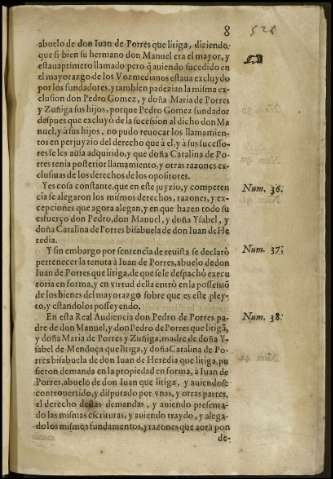 8
526
abuelo de don Iuan de Porres que litiga, diziendo,
que si bien su hermano don Manuel era el mayor, y
estaua primero llamado pero q̃ auiendo sucedido en
el mayorazgo de los Vozmedianos estaua excluydo
por los fundadores, y tambien padezian la misma ex
clusion don Pedro Gomez, y doña Maria de Porres
y Zuñiga sus hijos, porque Pedro Gomez fundador
despues que excluyò de la sucession al dicho don Ma
nuel, y à sus hijos, no pudo reuocar los llamamien-
tos en perjuyzio del derecho que à el, y à sus successo-
res se les auia adquirido, y que doña Catalina de Por-
res tenia posterior llamamiento, y otras razones ex-
clusiuas de los derechos de los opositores.
Yes cosa constante, que en este juyzio, y competen
cia se alegaron los mismos derechos, razones, y ex-
cepciones que agora alegan, y en que hazen todo su
esfuerço don Pedro, don Manuel, y doña Ysabel, y
doña Catalina de Porres bisabuela de don Iuan de He
redia.
Num. 36.
Y sin embargo por sentencia de reuista se declarò
pertenecer la tenuta à Iuan de Porres, abuelo de don
Iuan de Porres que litiga, de que se le despachò execu
toria en forma, y en virtud della entrò en la possession
de los bienes del mayorazgo sobre que es este pley-
to, y estandolos posseyendo.
Num. 37.
En esta Real Audiencia don Pedro de Porres pa-
dre de don Manuel, y don Pedro de Porres que litigã,
y doña Maria de Porres y Zuñiga, madre de doña Y-
sabel de Mendoça que litiga, y doña Catalina de Po-
rres bisabuela de don Iuan de Heredia que litiga, pu
sieron demanda en la propiedad en forma, à Iuan de
Porres, abuelo de don Iuan que litiga, y auiendose
controuertido, y disputado por vnas, y otras partes,
el derecho destas demandas, y auiendo presenta-
do las mismas escrituras, y auiendo traydo, y alega-
do los mismos fundamentos, y razones que aora pon
de-
Num. 38.